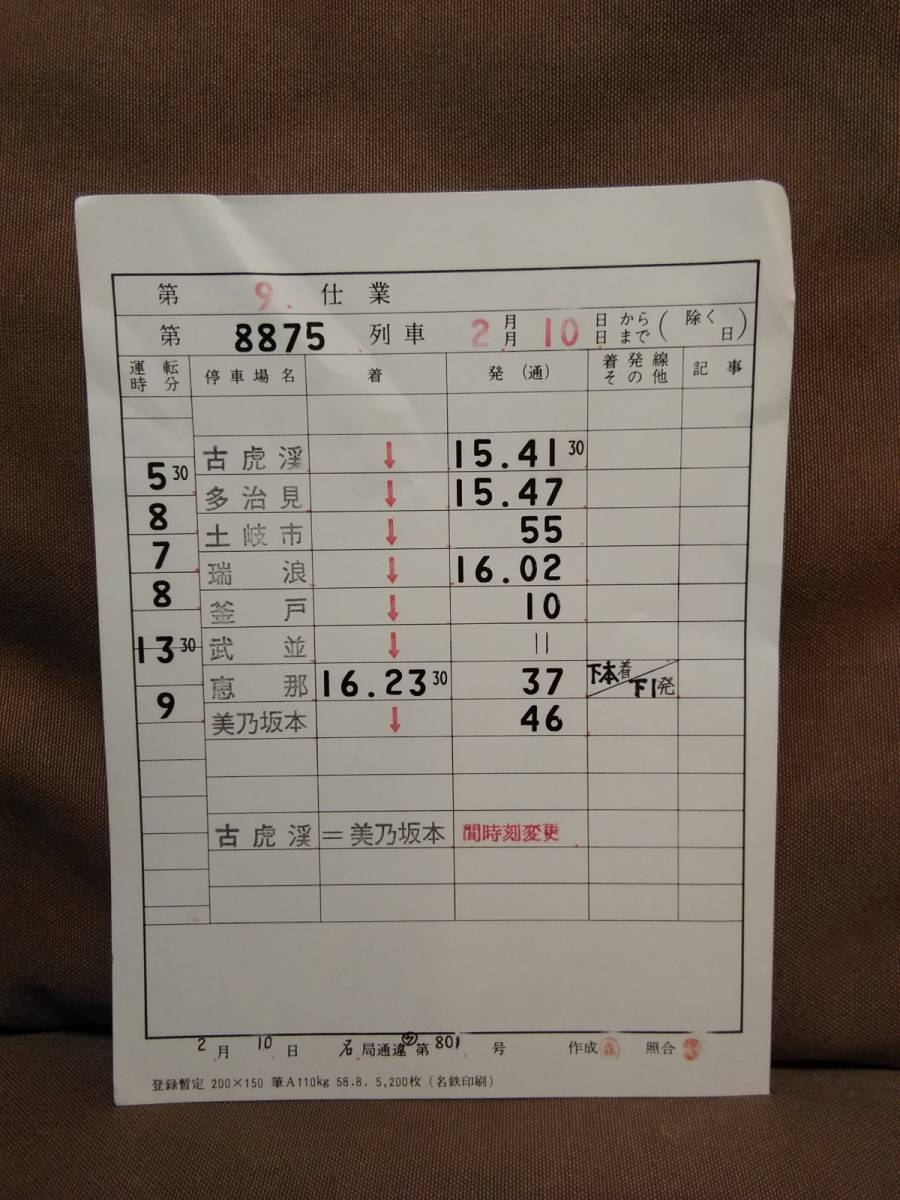 第 9. 仕業
第 8875 列車 2月月 10 日から日まで (除く 日)
運転時分 停車場名 着 発(通) 着発線その他 記事
古虎渓 ↓ 15.41 30
5 30
多治見 ↓ 15.47
8
土岐市 ↓ 55
7
瑞浪 ↓ 16.02
8
釜戸 ↓ 10
13 30
武並 ↓ 〃
恵那 16.23 30 37 下本着 下1発
9
美乃坂本 ↓ 46
古虎渓=美乃坂本 間時刻変更
2月 10日 名局通違 第801号 作成 森 照合
登録暫定 200×150 筆A110kg 58.8. 5,200枚(名鉄印刷)